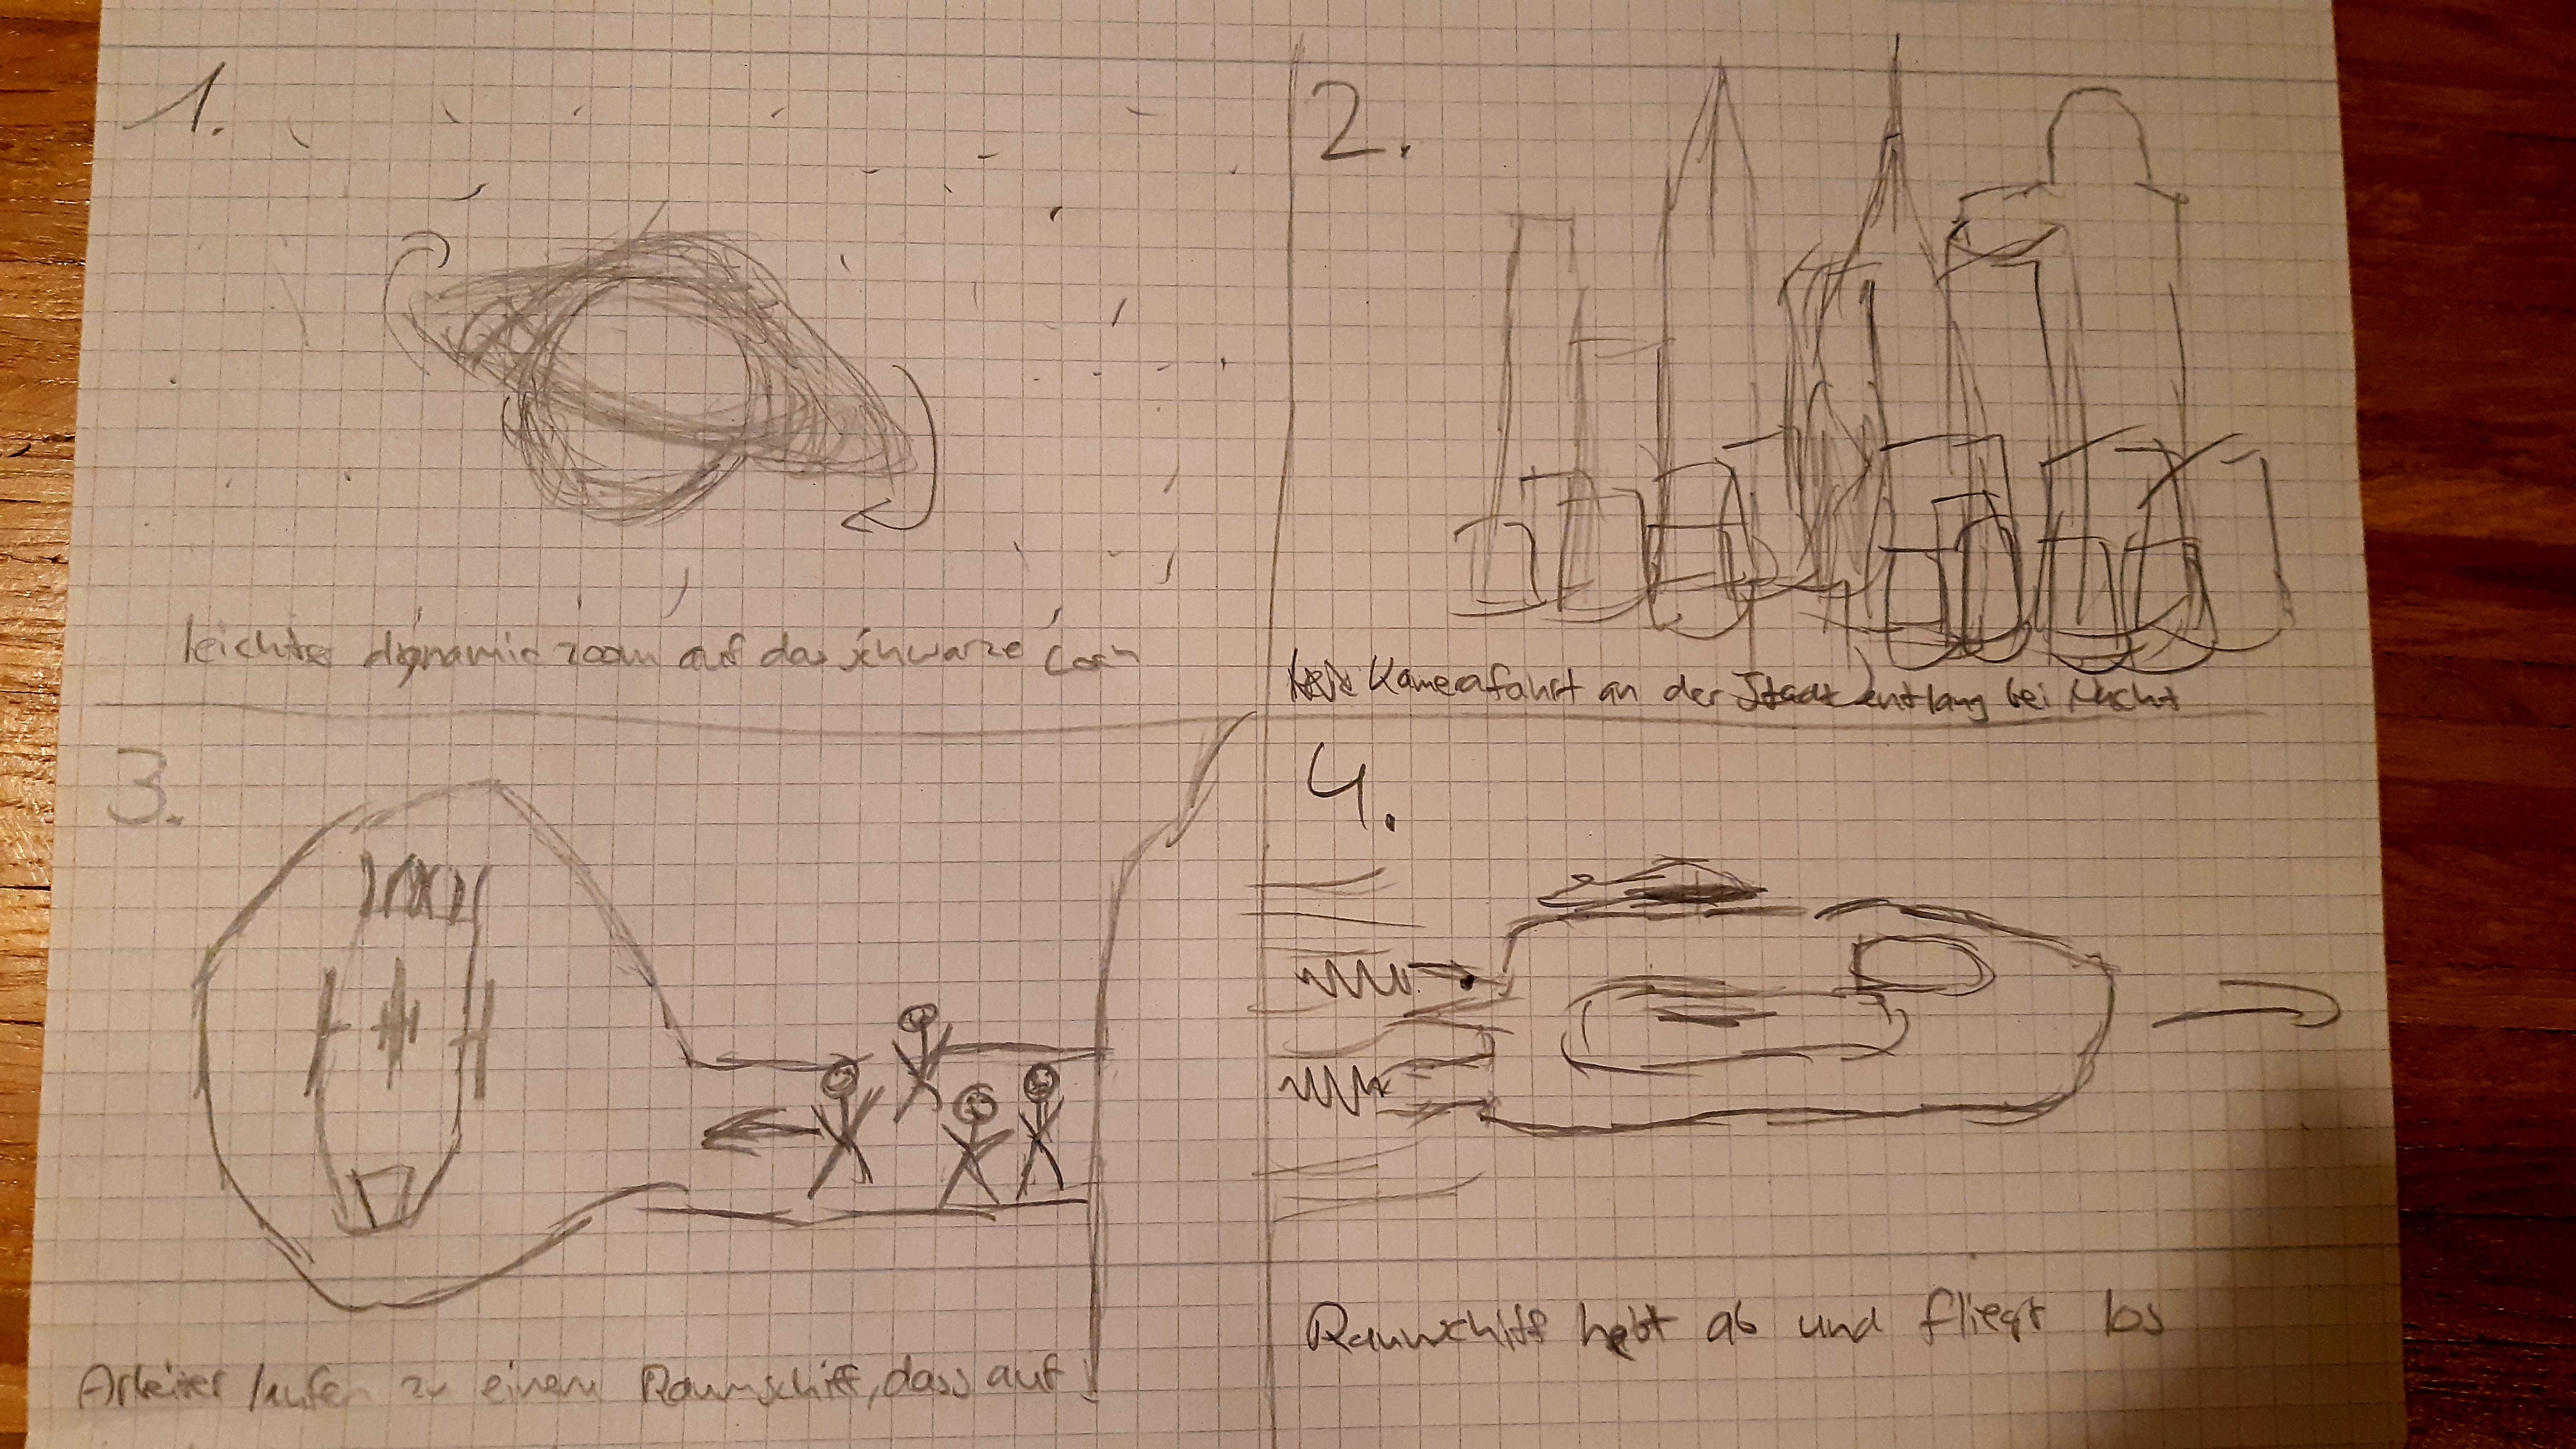 1.
leichter dynamic zoom auf das schwarze Loch
2.
Kamerafahrt an der Stadt entlang bei Nacht
3.
Arbeiter laufen zu einem Raumschiff, dass auf
4.
Raumschiff hebt ab und fliegt los